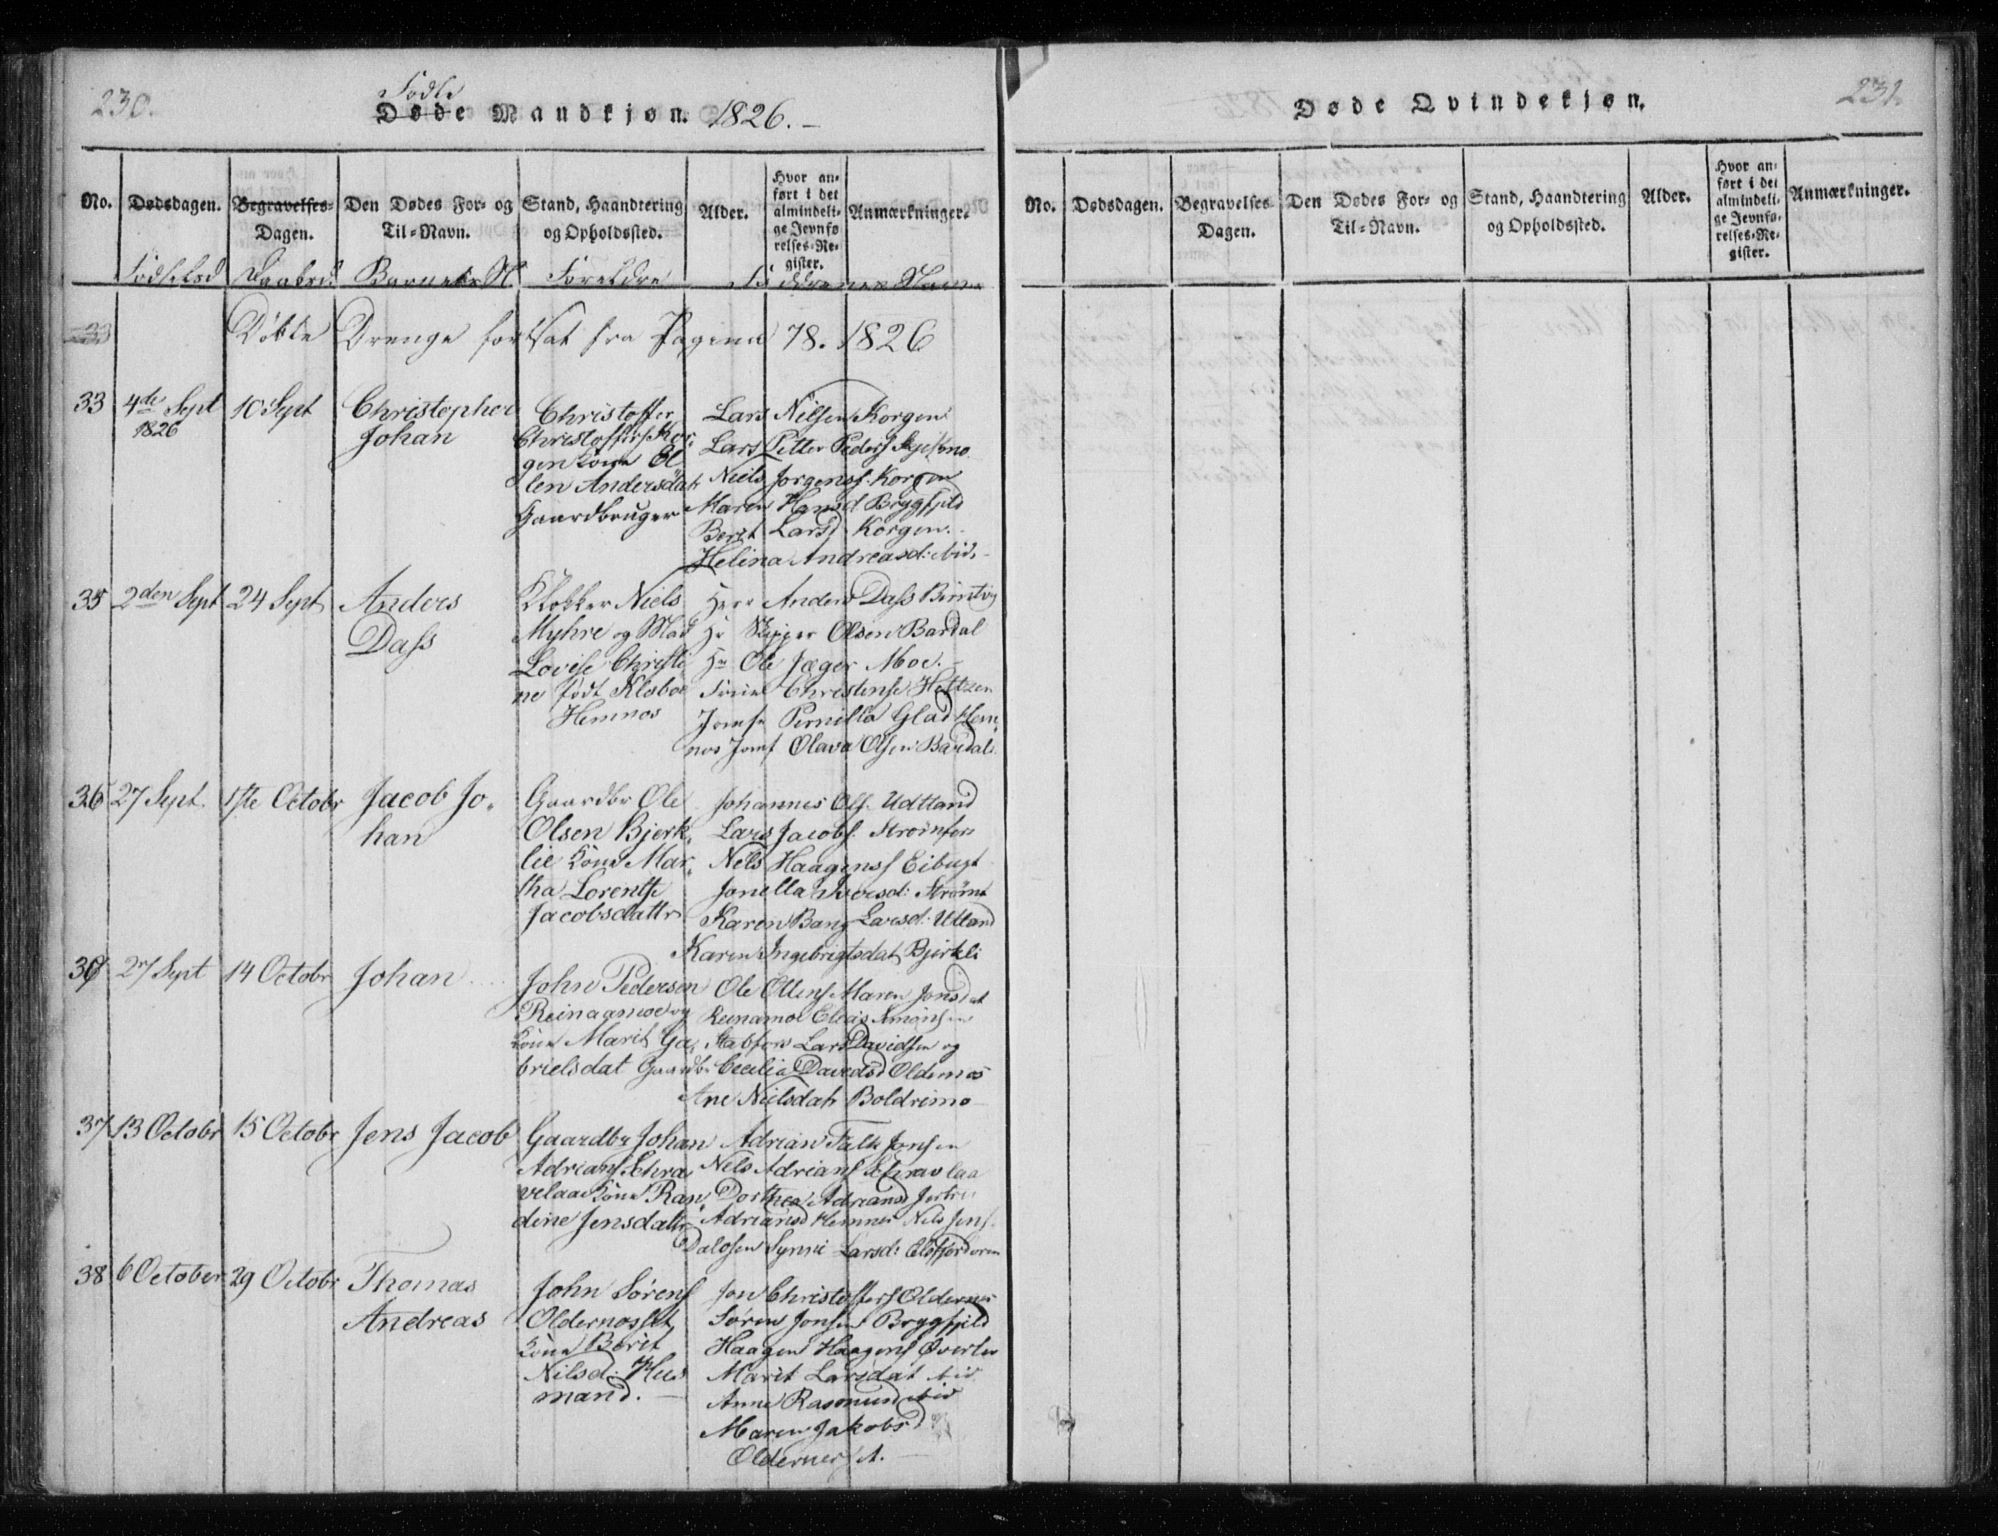 230.
Fødte
Døde Mandkjøn. 1826.
No. Dødsdagen. Begravelses-Dagen. Den Dødes For- og Til-Navn. Stand, Haandtering og Opholdssted. Alder. Hvor anført i det almindelige Jevnførelses-Register. Anmærkninger.
Barnets N. Forældre
Døbte Drenge fortsat fra Pagina 78. 1826
33 4de Sept 1826 10 Sept Christopher Johan
Christoffer
Christoffers Kor-
gen Kone El
len Andersdatr
Gaardbruger
Lars Nilsen Korgen
Lars Petter Peders
Niels Jorgens. Korgen
Maren Hansd Bryggfjeld
Berit Larsd Korgen.
Helina Andreasd: ibid.
35 2den Sept 24 Sept Anders Dass
Klokker Niels
Myhre og Mad
Lovise Christi
ne født Klæboe
Hemnos
Herr Anders Dass
Hr Skipper Olsen Bardal
Hr Ole Jæger Moe.
Christense Heltzen
Jomfr Pernilla Glad Hem-
nos Jomf Olava Olsen Bardal
36 27 Sept. 1ste Octobr Jacob Jo-
han
Gaardbr Ole
Olsen Bjerk-
lie Kone Mar-
tha Lorentse
Jacobsdattr
Johannes Ols. Udtland
Lars Jacobs. Strømfors
Nels Haagens Eibugt
Jonella Iversd:
Karen Bang Larsd: Utland
Karen Ingebrigtsdat Bjerkli
27 Sept 14 Octobr Johan
John Pedersen
Reinaamoe og
Kone Marit Ga-
brielsdat Gaardb:
Ole Ellens Maren Jonsdat
Reinamoe Elias Simonsen
Stabfors Lars Davidsen og
Cecilia Davidsd Oldernos
Ane Nielsdatr Boldrimo
37 13 Octobr 15 Octobr Jens Jacob
Gaardbr Johan
Adrians Schra-
velaae Kone Ran-
dine Jensdattr
Adrian Falk Jonsen
Nels Adrians Schravlaa
Dorthea Adriansd
Adriansd Hemnes Nils Jens
Dalosen Synni Larsd:
38 6 October 29 Octobr Thomas
Andreas
John Sørens
Oldernosset
Kone Berit
Nilsd: Hus
mand.
Jon Christoffers Oldernes
Søren Jonsen Bryggfjeld
Haagen Haagens
Marit Larsdat ibid
Anne Rasmusd ibid
Maren Jakobsd
Oldernerset.
231.
Døde Qvindekjøn.
No. Dødsdagen. Begravelses-Dagen. Den Dødes For- og Til-Navn. Stand, Haandtering og Opholdssted. Alder. Hvor anført i det almindelige Jevnførelses-Register. Anmærkninger.